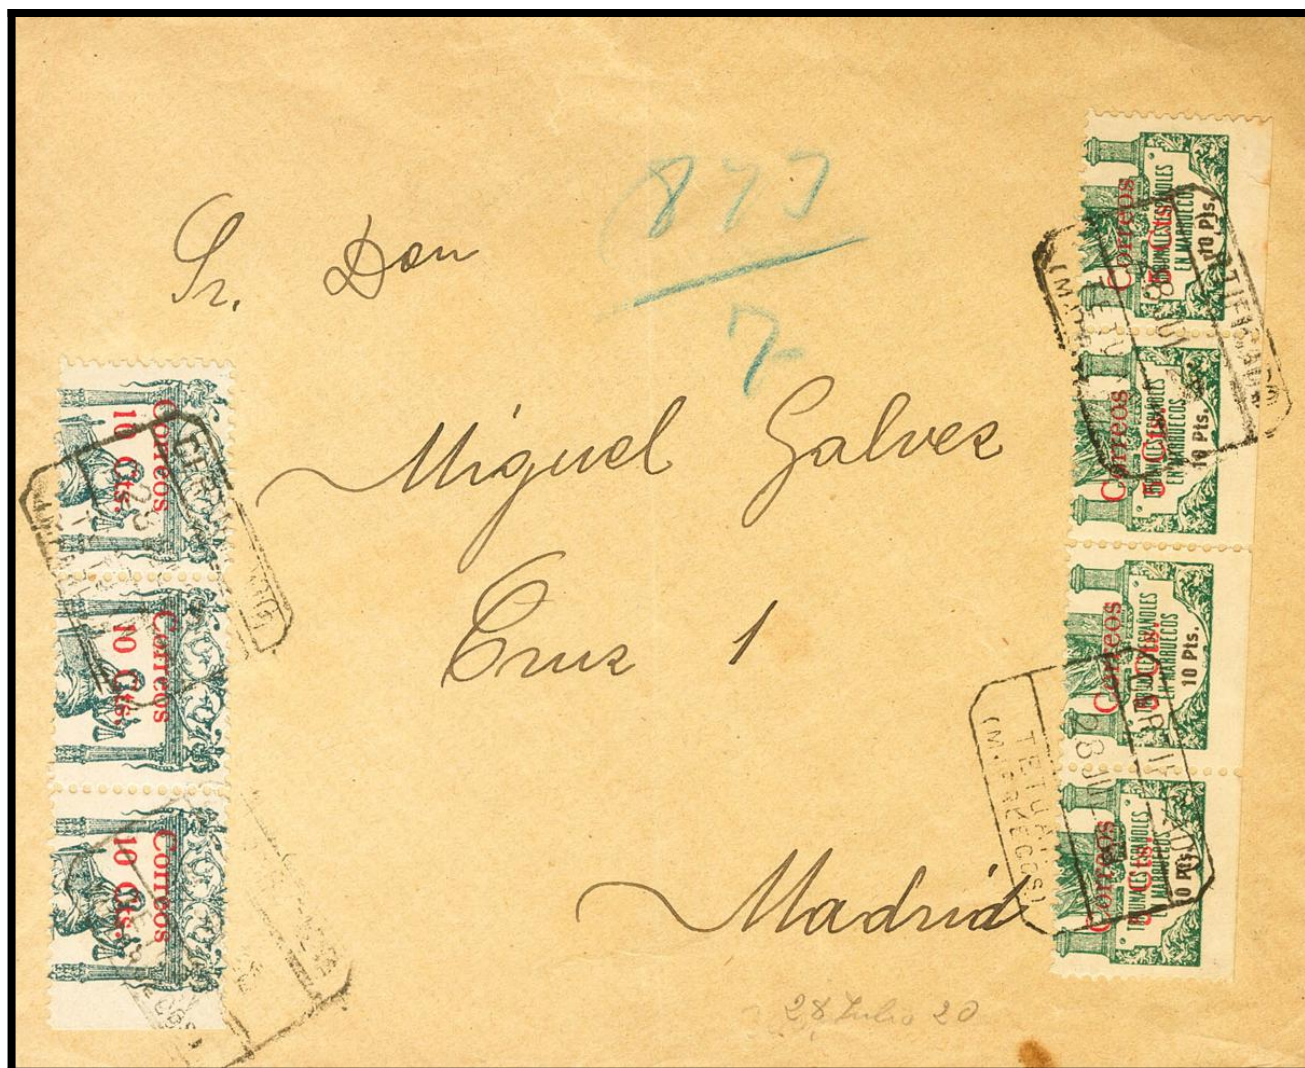 877
7
Sr. Don
Miguel Galvez
Cruz 1
Madrid
28 Julio 20
Correos
10 Cts.
Correos
10 Cts.
Correos
10 Cts.
Correos
5 Cts.
TRIBUNALES ESPAÑOLES
EN MARRUECOS
10 Pts.
Correos
5 Cts.
TRIBUNALES ESPAÑOLES
EN MARRUECOS
10 Pts.
Correos
5 Cts.
TRIBUNALES ESPAÑOLES
EN MARRUECOS
10 Pts.
Correos
5 Cts.
TRIBUNALES ESPAÑOLES
EN MARRUECOS
10 Pts.
CERTIFICADO
28 JUL
TETUAN
(MARRUECOS)